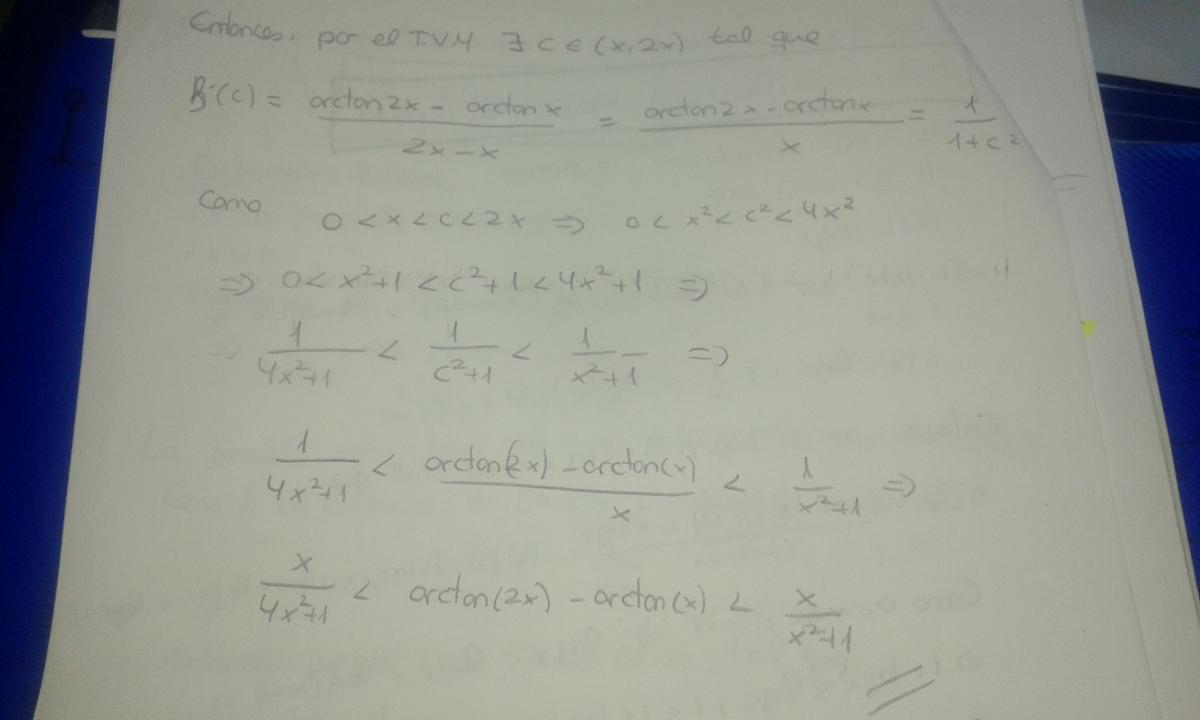 Entonces, por el T.V.M ∃ c ∈ (x, 2x) tal que
B'(c) = (arctan 2x - arctan x)/(2x - x) = (arctan 2x - arctan x)/x = 1/(1+c²)
Como 0 < x < c < 2x ⇒ 0 < x² < c² < 4x²
⇒ 0 < x²+1 < c²+1 < 4x²+1 ⇒
⇒ 1/(4x²+1) < 1/(c²+1) < 1/(x²+1) ⇒
1/(4x²+1) < (arctan(2x) - arctan(x))/x < 1/(x²+1) ⇒
x/(4x²+1) < arctan(2x) - arctan(x) < x/(x²+1)